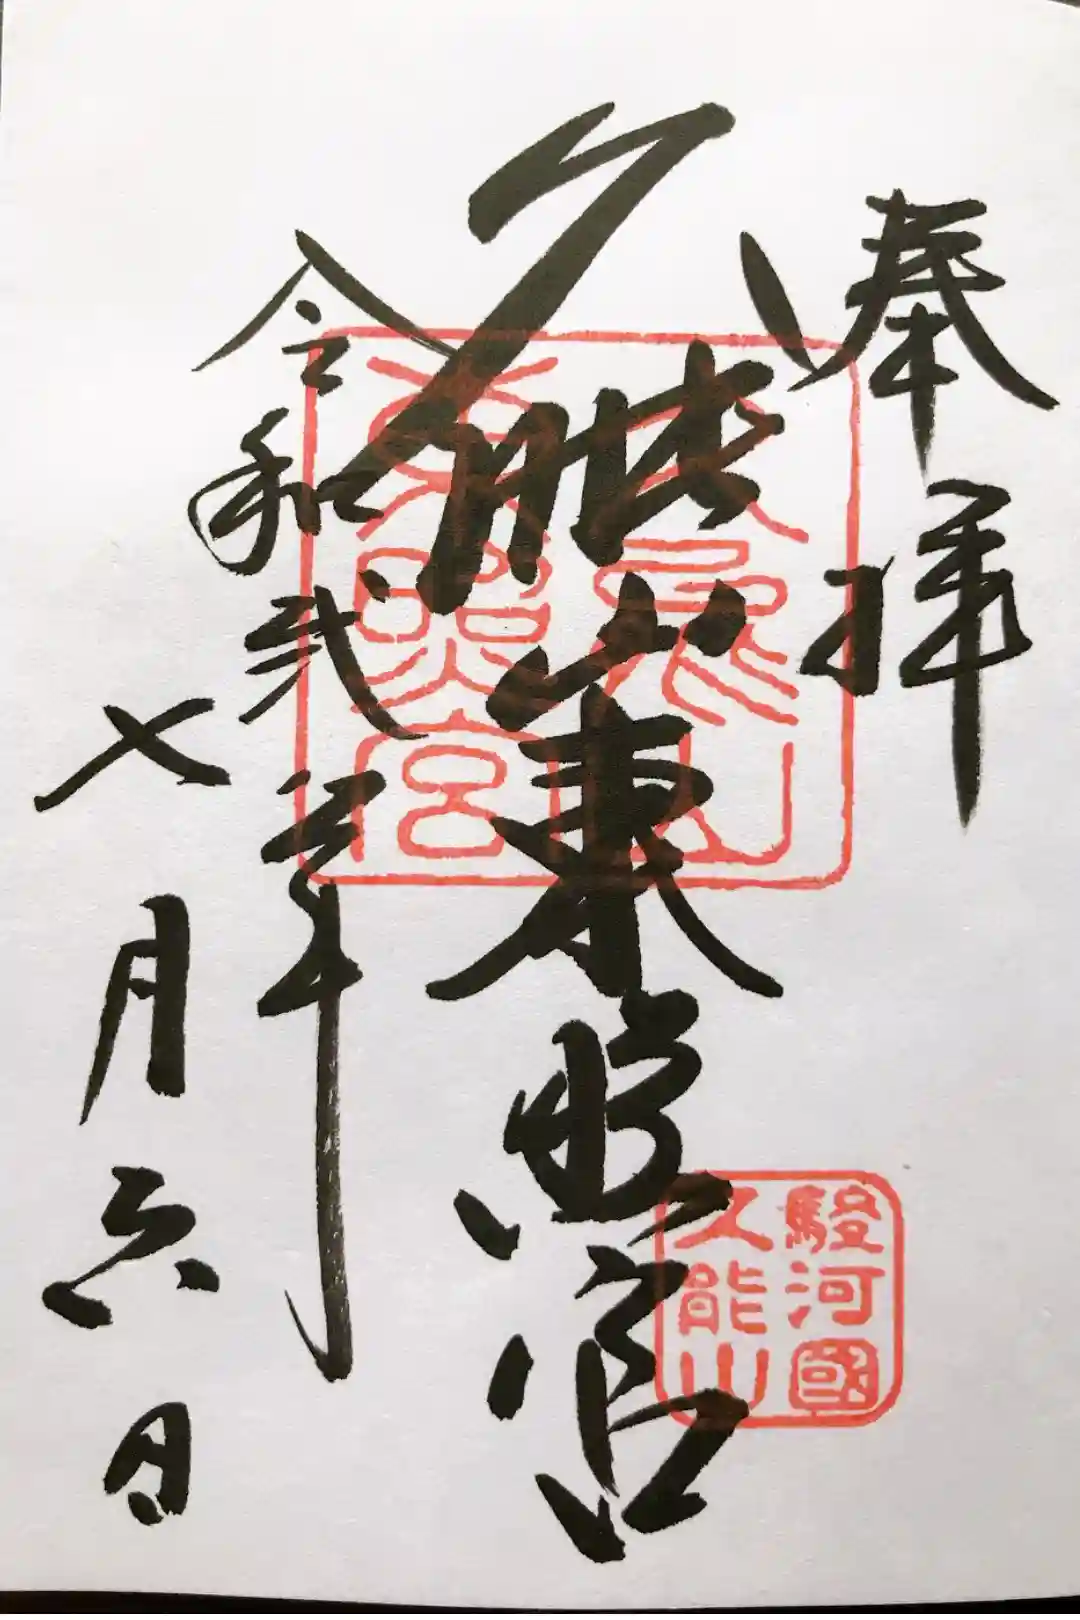 奉拝
久能山東照宮
令和弐年
七月六日
久能山
東照宮
駿河國
久能山